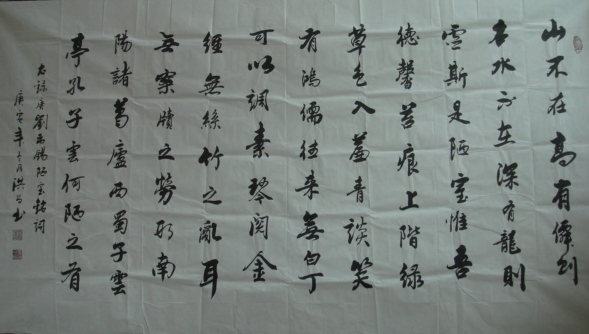 山不在高有僊則
名水不在深有龍則
靈斯是陋室惟吾
德馨苔痕上階緑
草色入簾青談笑
有鴻儒往来無白丁
可以調素琴閱金
經無絲竹之亂耳
无案牘之勞形南
陽諸葛廬西蜀子雲
亭孔子雲何陋之有
右録唐劉禹錫陋室銘詞
庚寅年月洪书